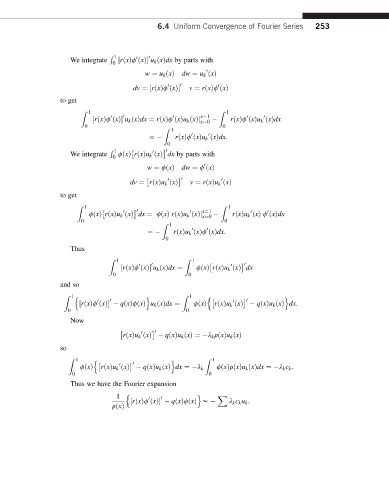 6.4 Uniform Convergence of Fourier Series 253
We integrate ∫₀¹ [r(x)ϕ′(x)]′uₖ(x)dx by parts with
w = uₖ(x) dw = uₖ′(x)
dv = [r(x)ϕ′(x)]′ v = r(x)ϕ′(x)
to get
∫₀¹ [r(x)ϕ′(x)]′uₖ(x)dx = r(x)ϕ′(x)uₖ(x)|ₓ₌₀ˣ⁼¹ − ∫₀¹ r(x)ϕ′(x)uₖ′(x)dx
= − ∫₀¹ r(x)ϕ′(x)uₖ′(x)dx.
We integrate ∫₀¹ ϕ(x)[r(x)uₖ′(x)]′dx by parts with
w = ϕ(x) dw = ϕ′(x)
dv = [r(x)uₖ′(x)]′ v = r(x)uₖ′(x)
to get
∫₀¹ ϕ(x)[r(x)uₖ′(x)]′dx = ϕ(x) r(x)uₖ′(x)|ₓ₌₀ˣ⁼¹ − ∫₀¹ r(x)uₖ′(x) ϕ′(x)dx
= − ∫₀¹ r(x)uₖ′(x)ϕ′(x)dx.
Thus
∫₀¹ [r(x)ϕ′(x)]′uₖ(x)dx = ∫₀¹ ϕ(x)[r(x)uₖ′(x)]′dx
and so
∫₀¹ {[r(x)ϕ′(x)]′ − q(x)ϕ(x)}uₖ(x)dx = ∫₀¹ ϕ(x){[r(x)uₖ′(x)]′ − q(x)uₖ(x)}dx.
Now
[r(x)uₖ′(x)]′ − q(x)uₖ(x) = −λₖρ(x)uₖ(x)
so
∫₀¹ ϕ(x){[r(x)uₖ′(x)]′ − q(x)uₖ(x)}dx = −λₖ ∫₀¹ ϕ(x)ρ(x)uₖ(x)dx = −λₖcₖ.
Thus we have the Fourier expansion
1/ρ(x) {[r(x)ϕ′(x)]′ − q(x)ϕ(x)} ~ − ∑ λₖcₖuₖ.